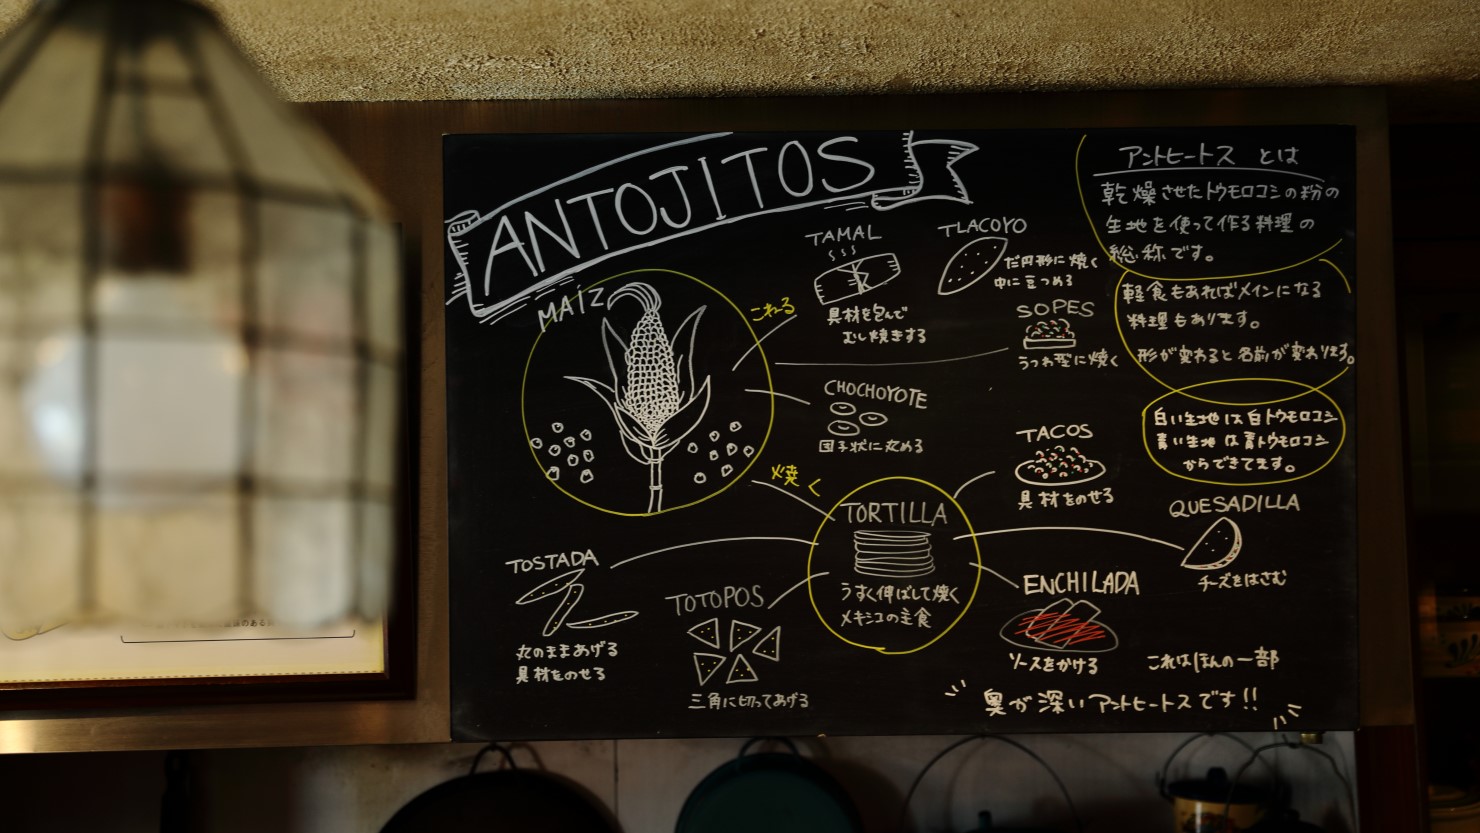 ANTOJITOS
アントヒートス とは
乾燥させたトウモロコシの粉の
生地を使って作る料理の
総称です。
軽食もあればメインになる
料理もあります。
形が変わると名前が変わります。
白い生地は白トウモロコシ
青い生地は青トウモロコシ
からできてます。
MAÍZ
こねる
TAMAL
具材を包んで
むし焼きする
TLACOYO
だ円形に焼く
中に豆つめる
SOPES
うつわ型に焼く
CHOCHOYOTE
団子状に丸める
焼く
TORTILLA
うすく伸ばして焼く
メキシコの主食
TACOS
具材をのせる
QUESADILLA
チーズをはさむ
ENCHILADA
ソースをかける
TOSTADA
丸のままあげる
具材をのせる
TOTOPOS
三角に切ってあげる
これはほんの一部
奥が深いアントヒートスです!!